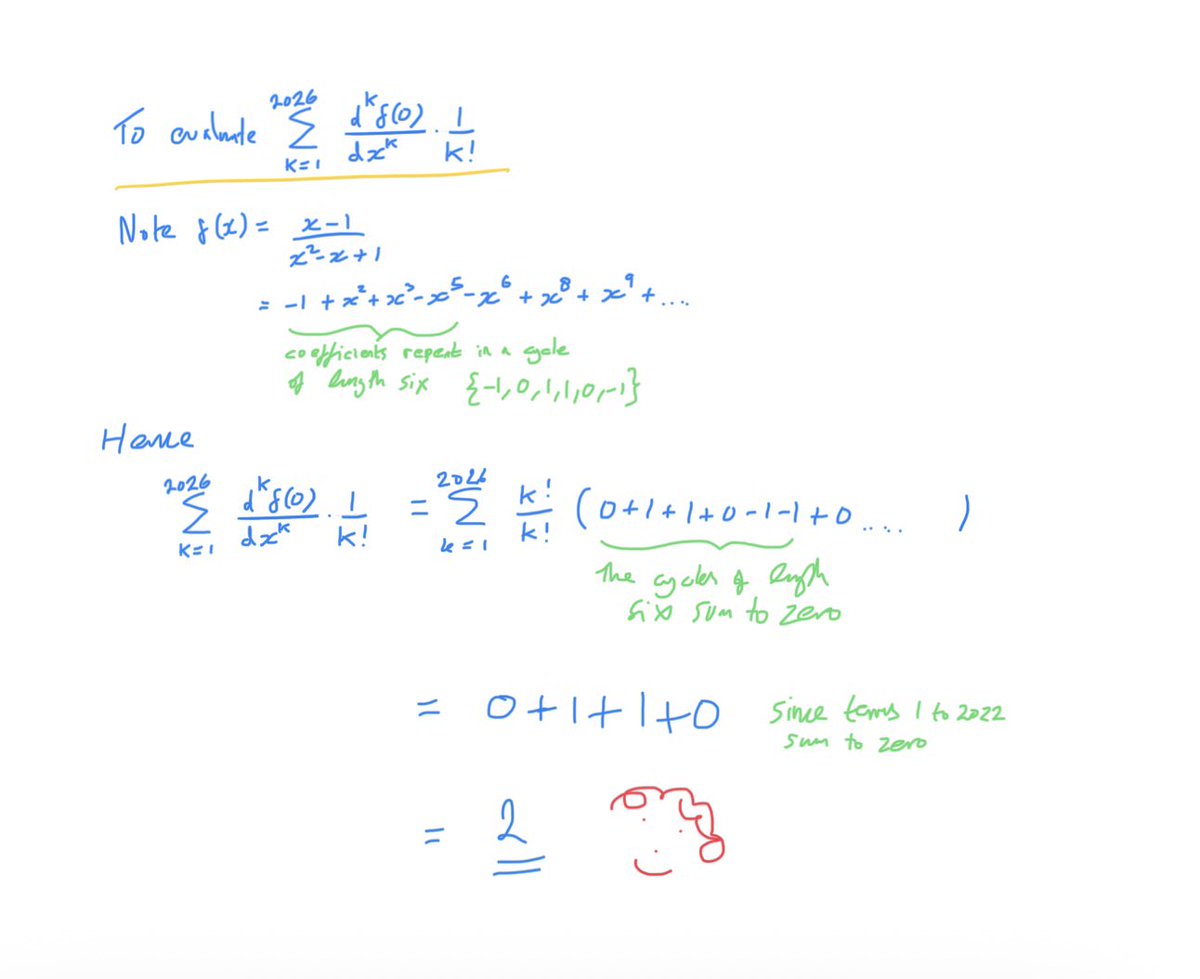 To evaluate ∑_{k=1}^{2026} d^k f(0)/dx^k · 1/k!
Note f(x) = (x-1)/(x²-x+1)
= -1 + x² + x³ - x⁵ - x⁶ + x⁸ + x⁹ + ....
coefficients repeat in a cycle
of length six {-1, 0, 1, 1, 0, -1}
Hence
∑_{k=1}^{2026} d^k f(0)/dx^k · 1/k! = ∑_{k=1}^{2026} k!/k! (0+1+1+0-1-1+0.... )
The cycles of length
six sum to zero
= 0+1+1+0 since terms 1 to 2022
sum to zero
= 2